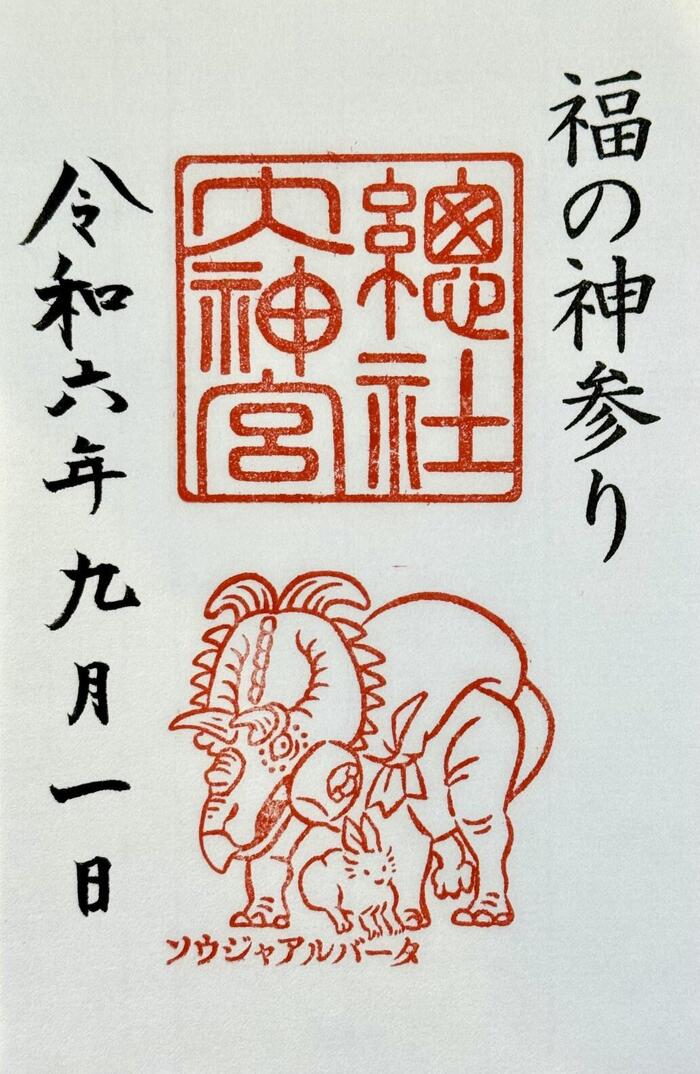 福の神参り
總社
大神宮
令和六年九月一日
ソウジャアルバータ